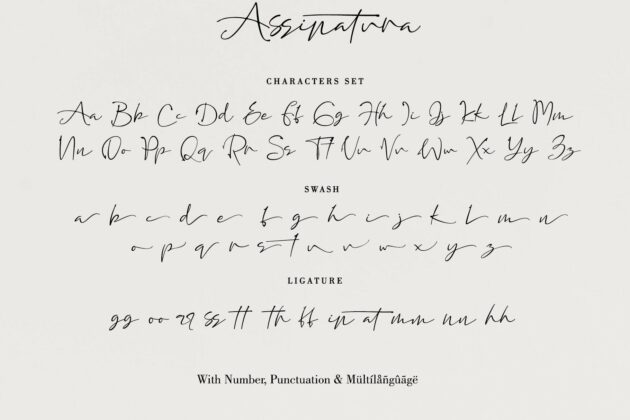 Assinatura
CHARACTERS SET
Aa Bb Cc Dd Ee Ff Gg Hh Ii Jj Kk Ll Mm
Nn Oo Pp Qq Rr Ss Tt Uu Vv Ww Xx Yy Zz
SWASH
a b c d e f g h i j k l m n
o p q r s t u v w x y z
LIGATURE
gg oo rr ss tt th ff in at mm nn hh
With Number, Punctuation & Mültílåñgûãgë